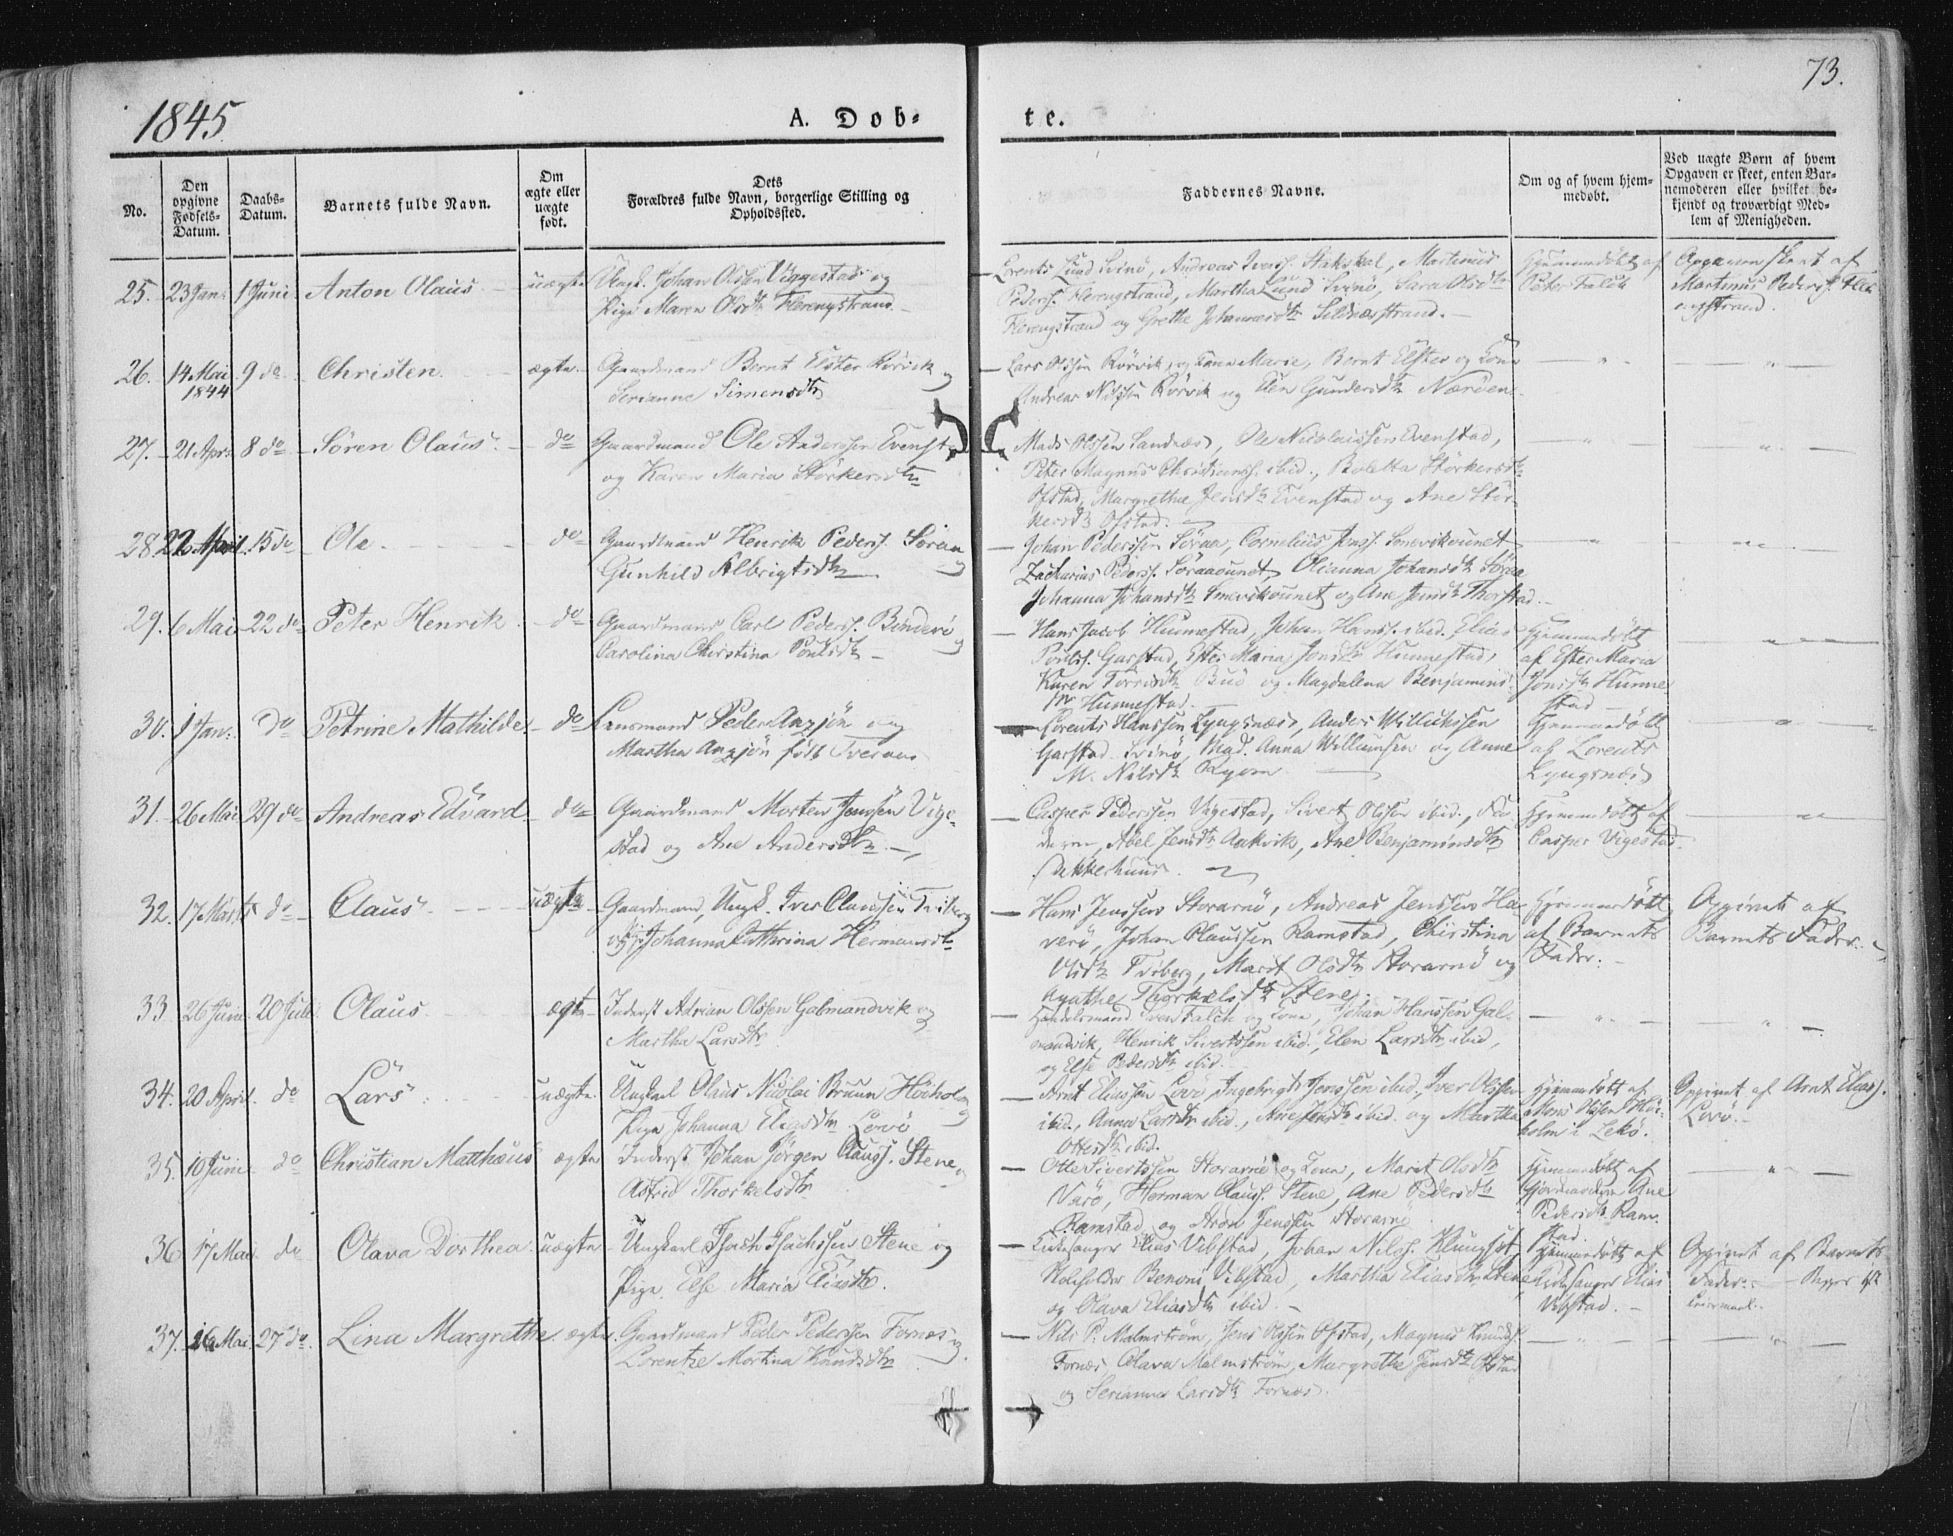 73.
1845
A. Døb-
te.
No.
Den
opgivne
Fødsels-
Datum.
Daabs-
Datum.
Barnets fulde Navn.
Om
ægte eller
uægte
født.
Dets
Forældres fulde Navn, borgerlige Stilling og
Opholdssted.
Faddernes Navne.
Om og af hvem hjem-
medøbt.
Ved uægte Børn af hvem
Opgaven er skeet, enten Bar-
nemoderen eller hvilket be-
kjendt og troværdigt Med-
lem af Menigheden.
25. 23 Jan. 1 Juni Anton Olaus uægte Ungk. Johan Olssen Viggestad og
Pige Maren Olsdtr Flerengstrand
Lorents Lund Svinø, Andreas Iverss. Martinus
Pederss. Flerengstrand, Martha Lund Svinø, Sara Olsdtr
Flerengstrand og Grethe Johannesdtr
Hjemmedøbt af
Peter Falch
Opgaven skeet af
Martinus Pederss. Fler
engstrand.
26. 14 Mai 9 do Christen ægte Gaardmand Bernt Elster Rörvik og
1844
Serianne Simensdtr
Lars Olssen Rörvik og Kone Marie, Bernt Elster og Kone
Andreas Nilssen Rörvik og Elen Gundersdtr Nærøen
27. 21 Apr. 8 do Sören Olaus do Gaardmand Ole Anderssen Evenst
og Karen Maria Störkersdtr
Mads Olssen Sandnæs, Ole Nicolaissen Evenstad,
Peter Magnus Christianss. ibid., Boletta Störkersdtr
Ofstad, Margrethe Jensdtr Evenstad og Ane Stör-
kersdtr Ofstad.
28 22 April 15 do Ole do Gaardmand Henrik Pederss. Söraa og
Gunhild Albrigtsdtr
Johan Pederssen Söraa, Cornelius Jenss.
Zacharias Pederss. Söraaounet, Olianna Johansdtr Söraa
Johanna Johansdtr og Ane Jensdtr Thorstad.
29. 6 Mai 22 do Peter Henrik do Gaardmand Carl Pederss. Binderö og
Carolina Christina Povlsdtr
Hans Jacob Hunnestad, Johan Hanss. ibid. Elias
Povlss. Garstad, Ester Maria Jonsdtr Hunnestad,
Karen Torrisdtr og Magdalena Benjamins-
dtr Hunnestad.
Hjemmedöbt
af Ester Maria
Jonsdtr Hunne
stad
30. 1 Jan. do Petrine Mathilde do Lensmand Peder Anzjön og
Martha Anzjön født
Lorents Hanssen Lyngsnæs, Anders Willumsen
Garstad Svinö, Anna Willumsen og Anne
M. Nilsdtr Ryem
Hjemmedöbt
af Lorents
Lyngsnæs
31. 26 Mai 29 do Andreas Edvard do Gaardmand Morten Jenssen Vige-
stad og Ane Andersdtr
Casper Pederssen Vigestad, Sivert Olssen ibid., Fa-
deren, Abel Jensdtr Aakvik, Ane Benjaminsdtr
Hjemmedöbt af
Casper Vigestad
32. 17 Marts do Claus uægte Gaardmand, Ungk. Iver Claussen Friberg
og Johanna Cathrina Hermansdtr
Hans Jenssen Storarnö, Andreas Jenssen Ha-
verö, Johan Claussen Ramstad, Christina
Olsdtr Friberg, Marit Olsdtr Storarnö og
Agathe Thorkelsdtr Stene.
Hjemmedöbt
af Barnets
Fader.
Opgivet af
Barnets Fader.
33 26 Juni 20 Juli Olaus ægte Inderst Adrian Olssen Galmandvik og
Martha Larsdtr
Handelsmand Sven Falch og Kone, Johan Hanssen Gal-
mandvik, Henrik Sivertssen ibid., Elen Larsdtr ibid.,
og Else Pedersdtr ibid.
34. 20 April do Lars uægte Ungkarl Olaus Nicolai Bruun Höiholm og
Pige Johanna Eliasdtr Lövö
Arnt Eliassen Lövö, Ingebrigt Jenssen ibid., Iver Olssen
ibid., Anna Larsdtr ibid., Ane Jensdtr ibid. og Martha
Ottesdtr ibid.
Hjemmedöbt af
Mons Olssen Höi-
holm i Lekö.
Opgivet af Arnt Eliass.
Lövö.
35. 10 Juni do Christian Matthæus ægte Inderst Johan Jörgen Clauss. Stene og
Astrid Thorkelsdtr
Otte Sivertssen Storarnö og Kone, Marit Olsdtr
Varö, Herman Clauss. Stene, Ane Pedersdtr
Ramstad og Aron Jenssen Storarnö
Hjemmedöbt af
Gjordemoderen Ane
Pedersdtr Ram-
stad.
36 17 Mai do Olava Dorthea uægte Ungkarl Isach Isachssen Stene og
Pige Else Maria Eliasdtr.
Kirkesanger Elias Vibstad, Johan Nilss. Klungset,
Benoni Vibstad, Martha Eliasdtr Stene
og Olava Eliasdtr ibid.
Hjemmedöbt af
Kirkesanger Elias
Vibstad.
Opgivet af Barnets
Fader.
37. 16 Mai 27 do Lina Margrethe ægte Gaardmand Peder Pederssen Fornæs og
Lorentze Martina Knudsdtr
Nils P. Malmström, Jens Olssen Ofstad, Magnus Knudss.
Fornæs, Olava Malmström, Margrethe Jensdtr Ofstad
og Serianna Larsdtr Fornæs.